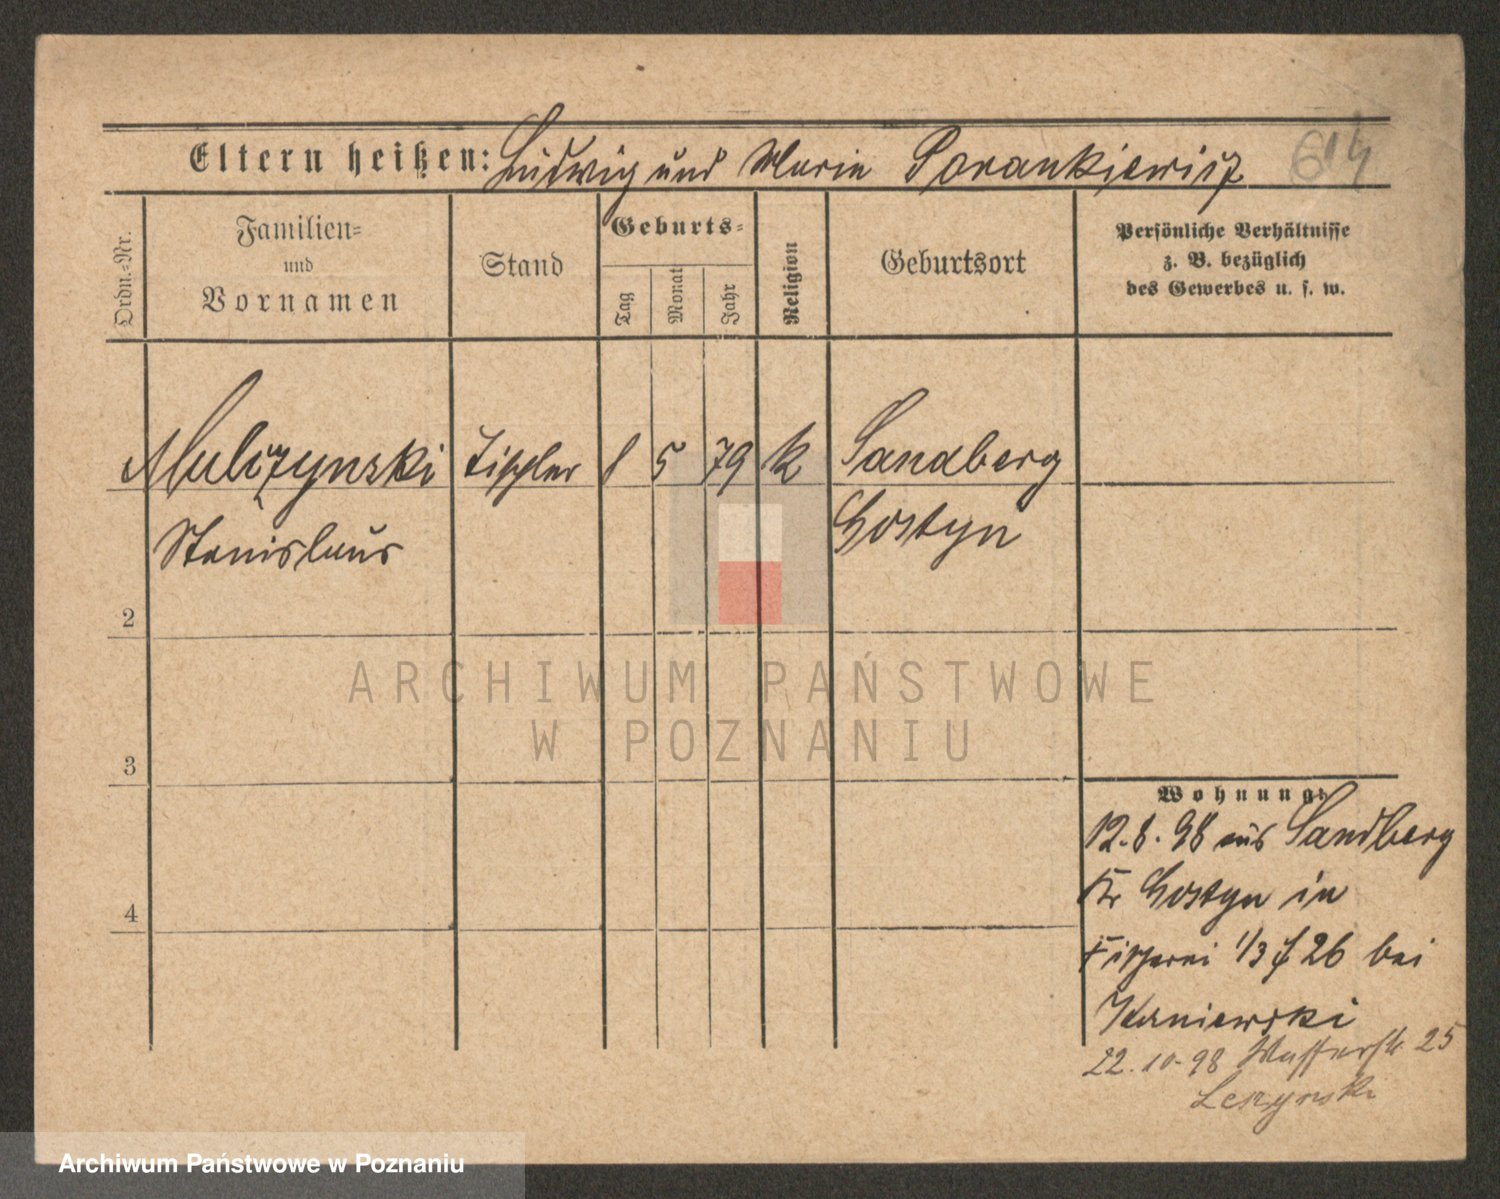 Eltern heißen: Ludwig und Marie Porankiewicz
614
Ordn.=Nr.
Familien=
und
Vornamen
Stand
Geburts=
Tag
Monat
Jahr
Religion
Geburtsort
Persönliche Verhältnisse
z. B. bezüglich
des Gewerbes u. s. w.
Mulczynski Tischler 8 5 79 k Sandberg
Stanislaus Gostyn
2
3
4
Wohnung:
12.8.98 aus Sandberg
Kr Gostyn in
Fischerei 1/3 26 bei
Kaniewski
22.10.98 Wasserstr 25
ARCHIWUM PAŃSTWOWE
W POZNANIU
Archiwum Państwowe w Poznaniu